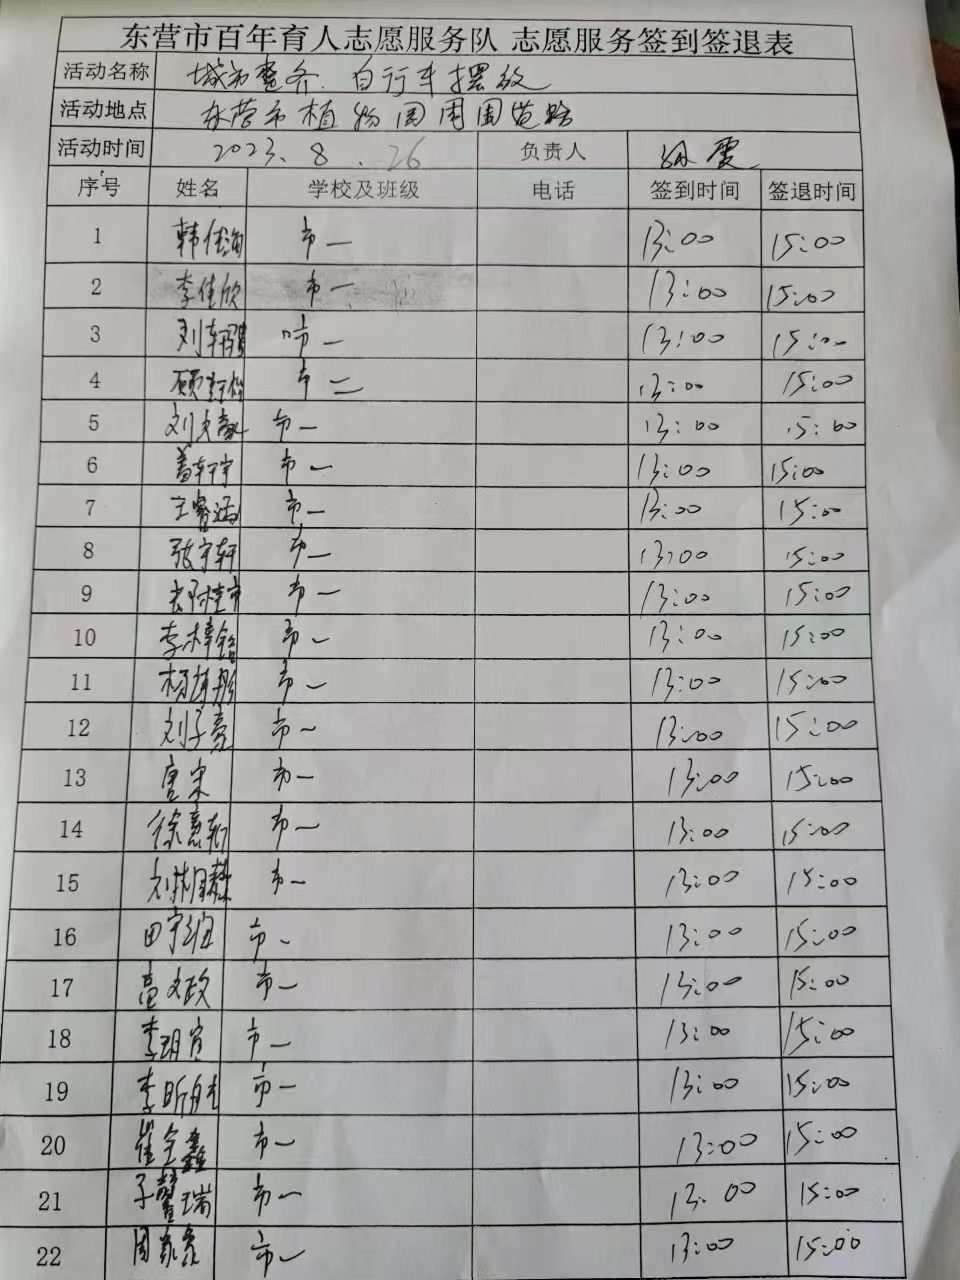 东营市百年育人志愿服务队 志愿服务签到签退表
活动名称 城市整齐 自行车摆放
活动地点 东营市植物园周围道路
活动时间 2023.8.26 负责人 孙霞
序号 姓名 学校及班级 电话 签到时间 签退时间
1 韩佳 市一 13:00 15:00
2 李佳欣 市一 13:00 15:00
3 刘 市一 13:00 15:00
4 顾 市二 13:00 15:00
5 刘文 市一 13:00 15:00
6 轩宇 市一 13:00 15:00
7 王睿涵 市一 13:00 15:00
8 张宇轩 市一 13:00 15:00
9 市一 13:00 15:00
10 李梓铭 市一 13:00 15:00
11 杨 市一 13:00 15:00
12 刘子亮 市一 13:00 15:00
13 唐宋 市一 13:00 15:00
14 徐 市一 13:00 15:00
15 刘 市一 13:00 15:00
16 田宇 市一 13:00 15:00
17 文政 市一 13:00 15:00
18 李玥宜 市一 13:00 15:00
19 李昕 市一 13:00 15:00
20 崔全鑫 市一 13:00 15:00
21 馨瑞 市一 13:00 15:00
22 周 市一 13:00 15:00